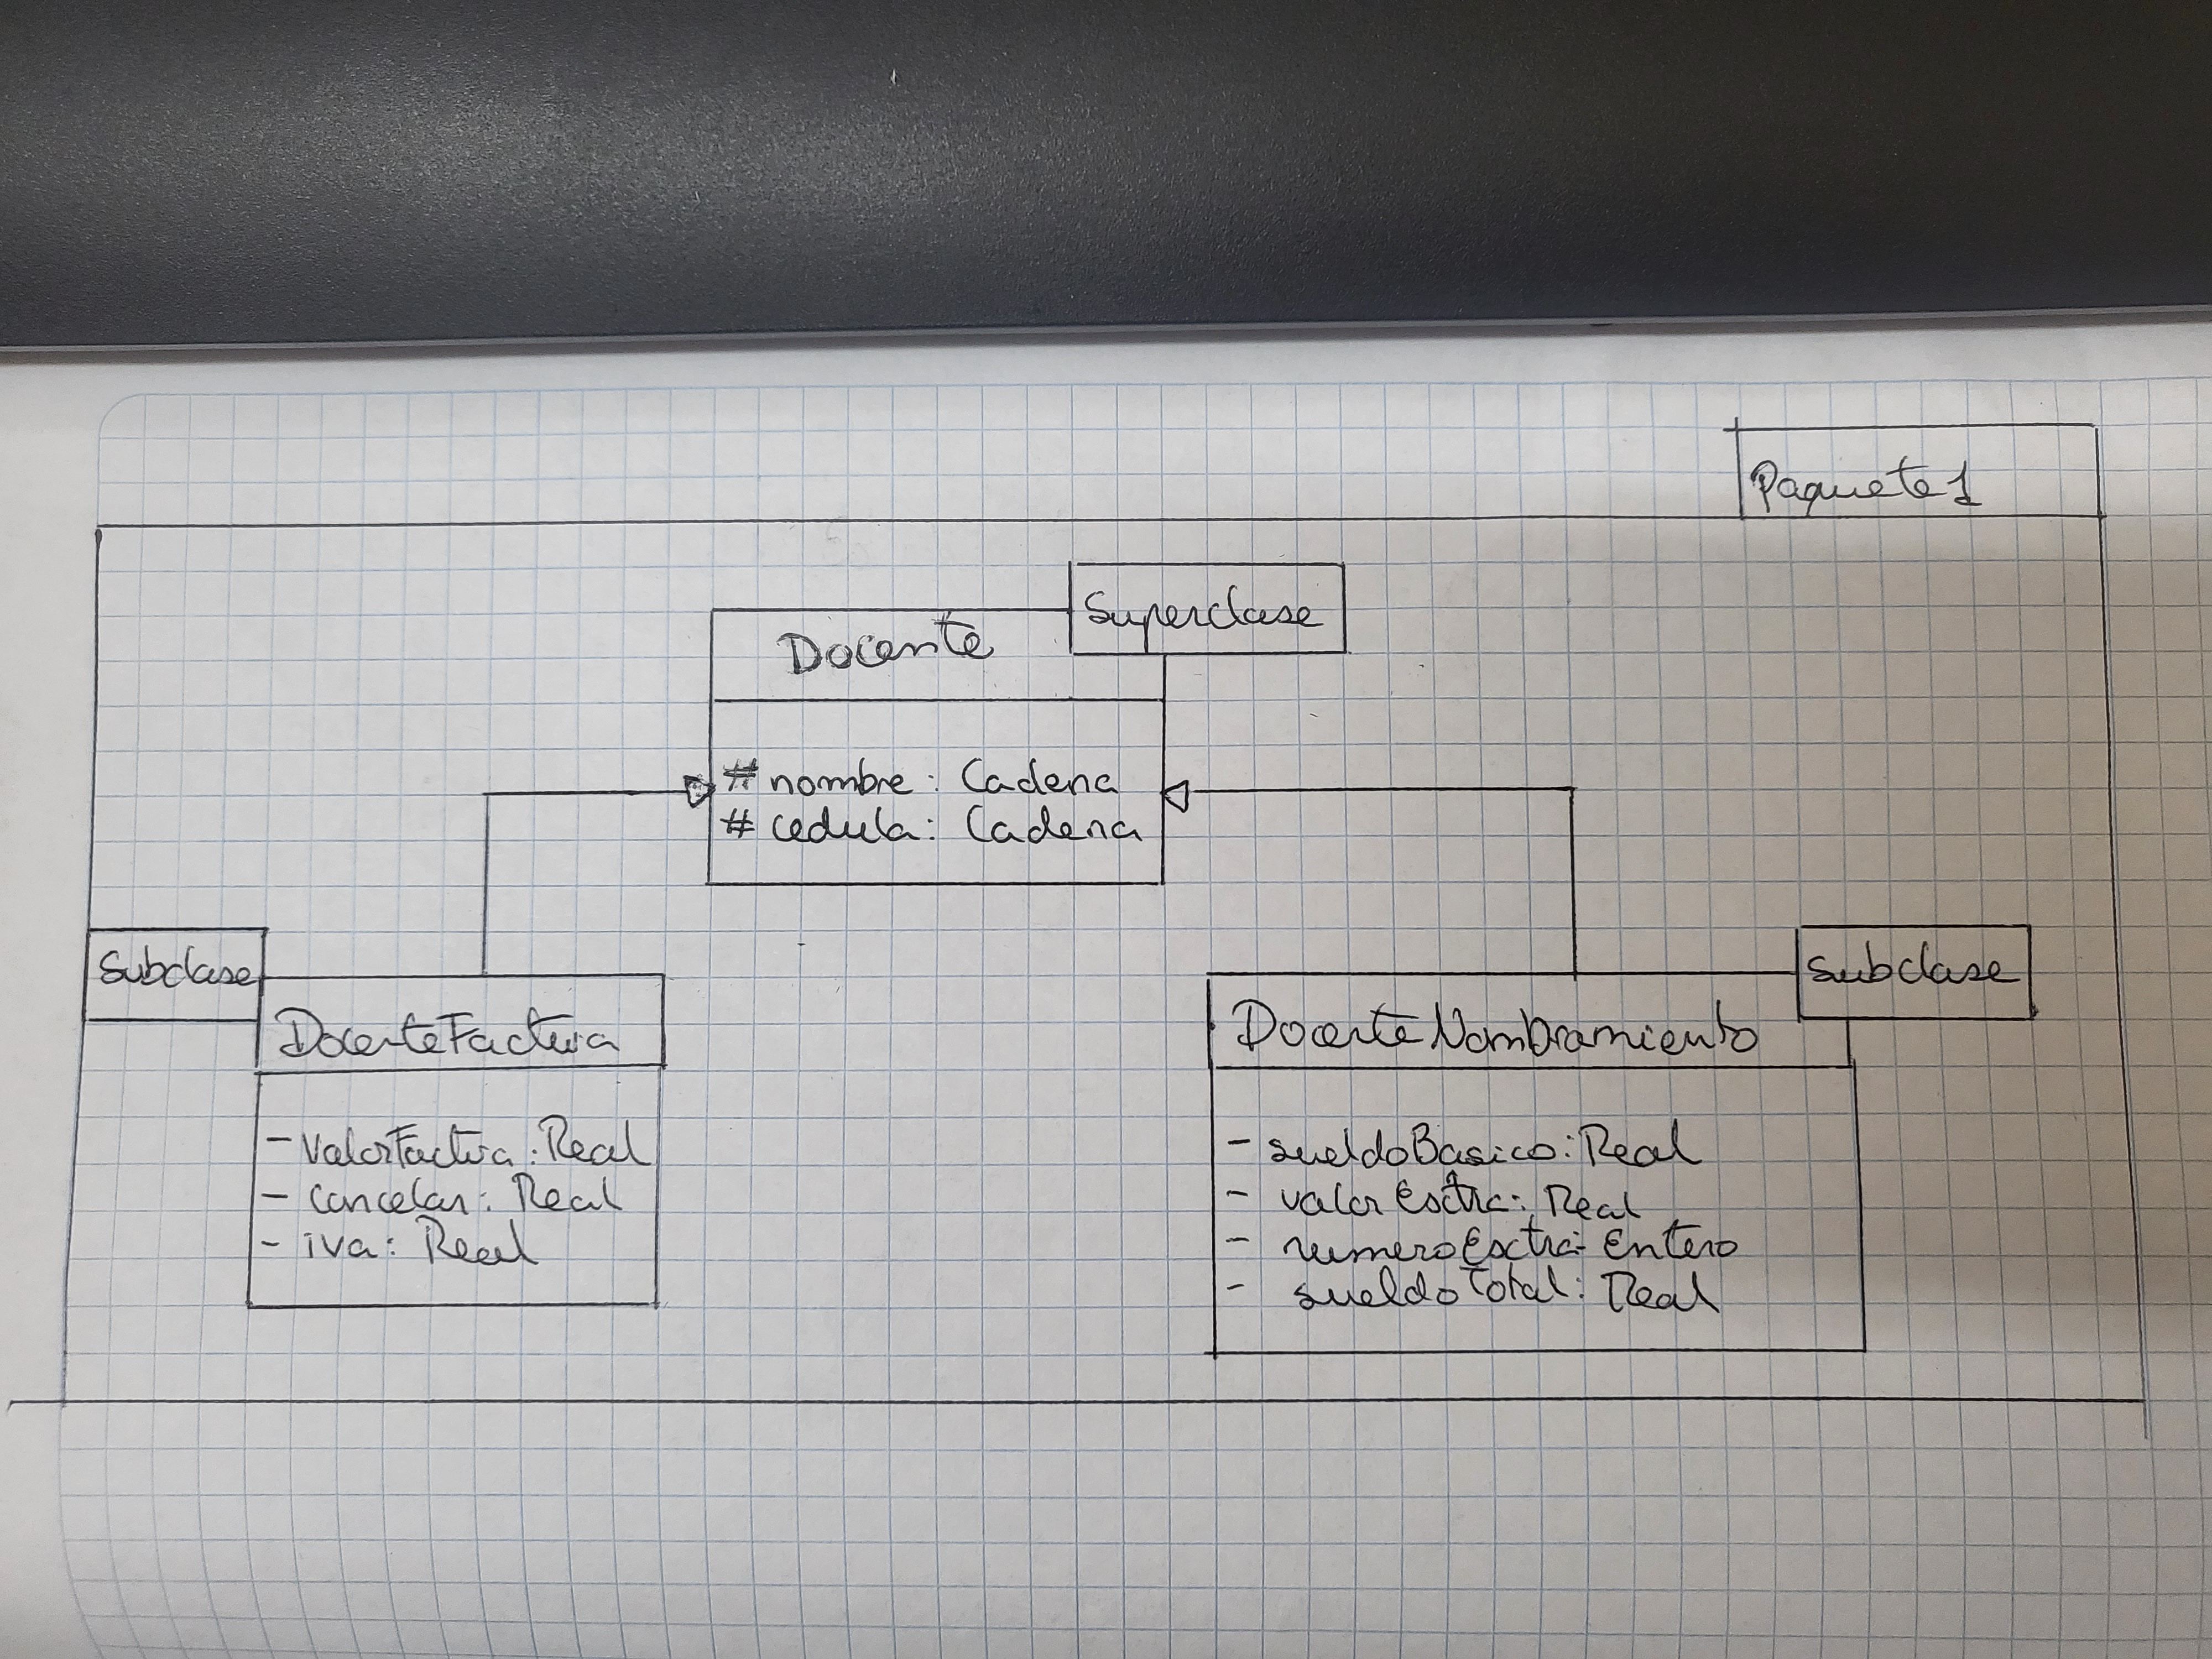 Paquete 1
Superclase
Docente
# nombre : Cadena
# cedula : Cadena
Subclase
DocenteFactura
- ValorFactura : Real
- Cancelar : Real
- iva : Real
Subclase
DocenteNombramiento
- sueldoBasico : Real
- valorExtra : Real
- numeroExtra : Entero
- sueldoTotal : Real